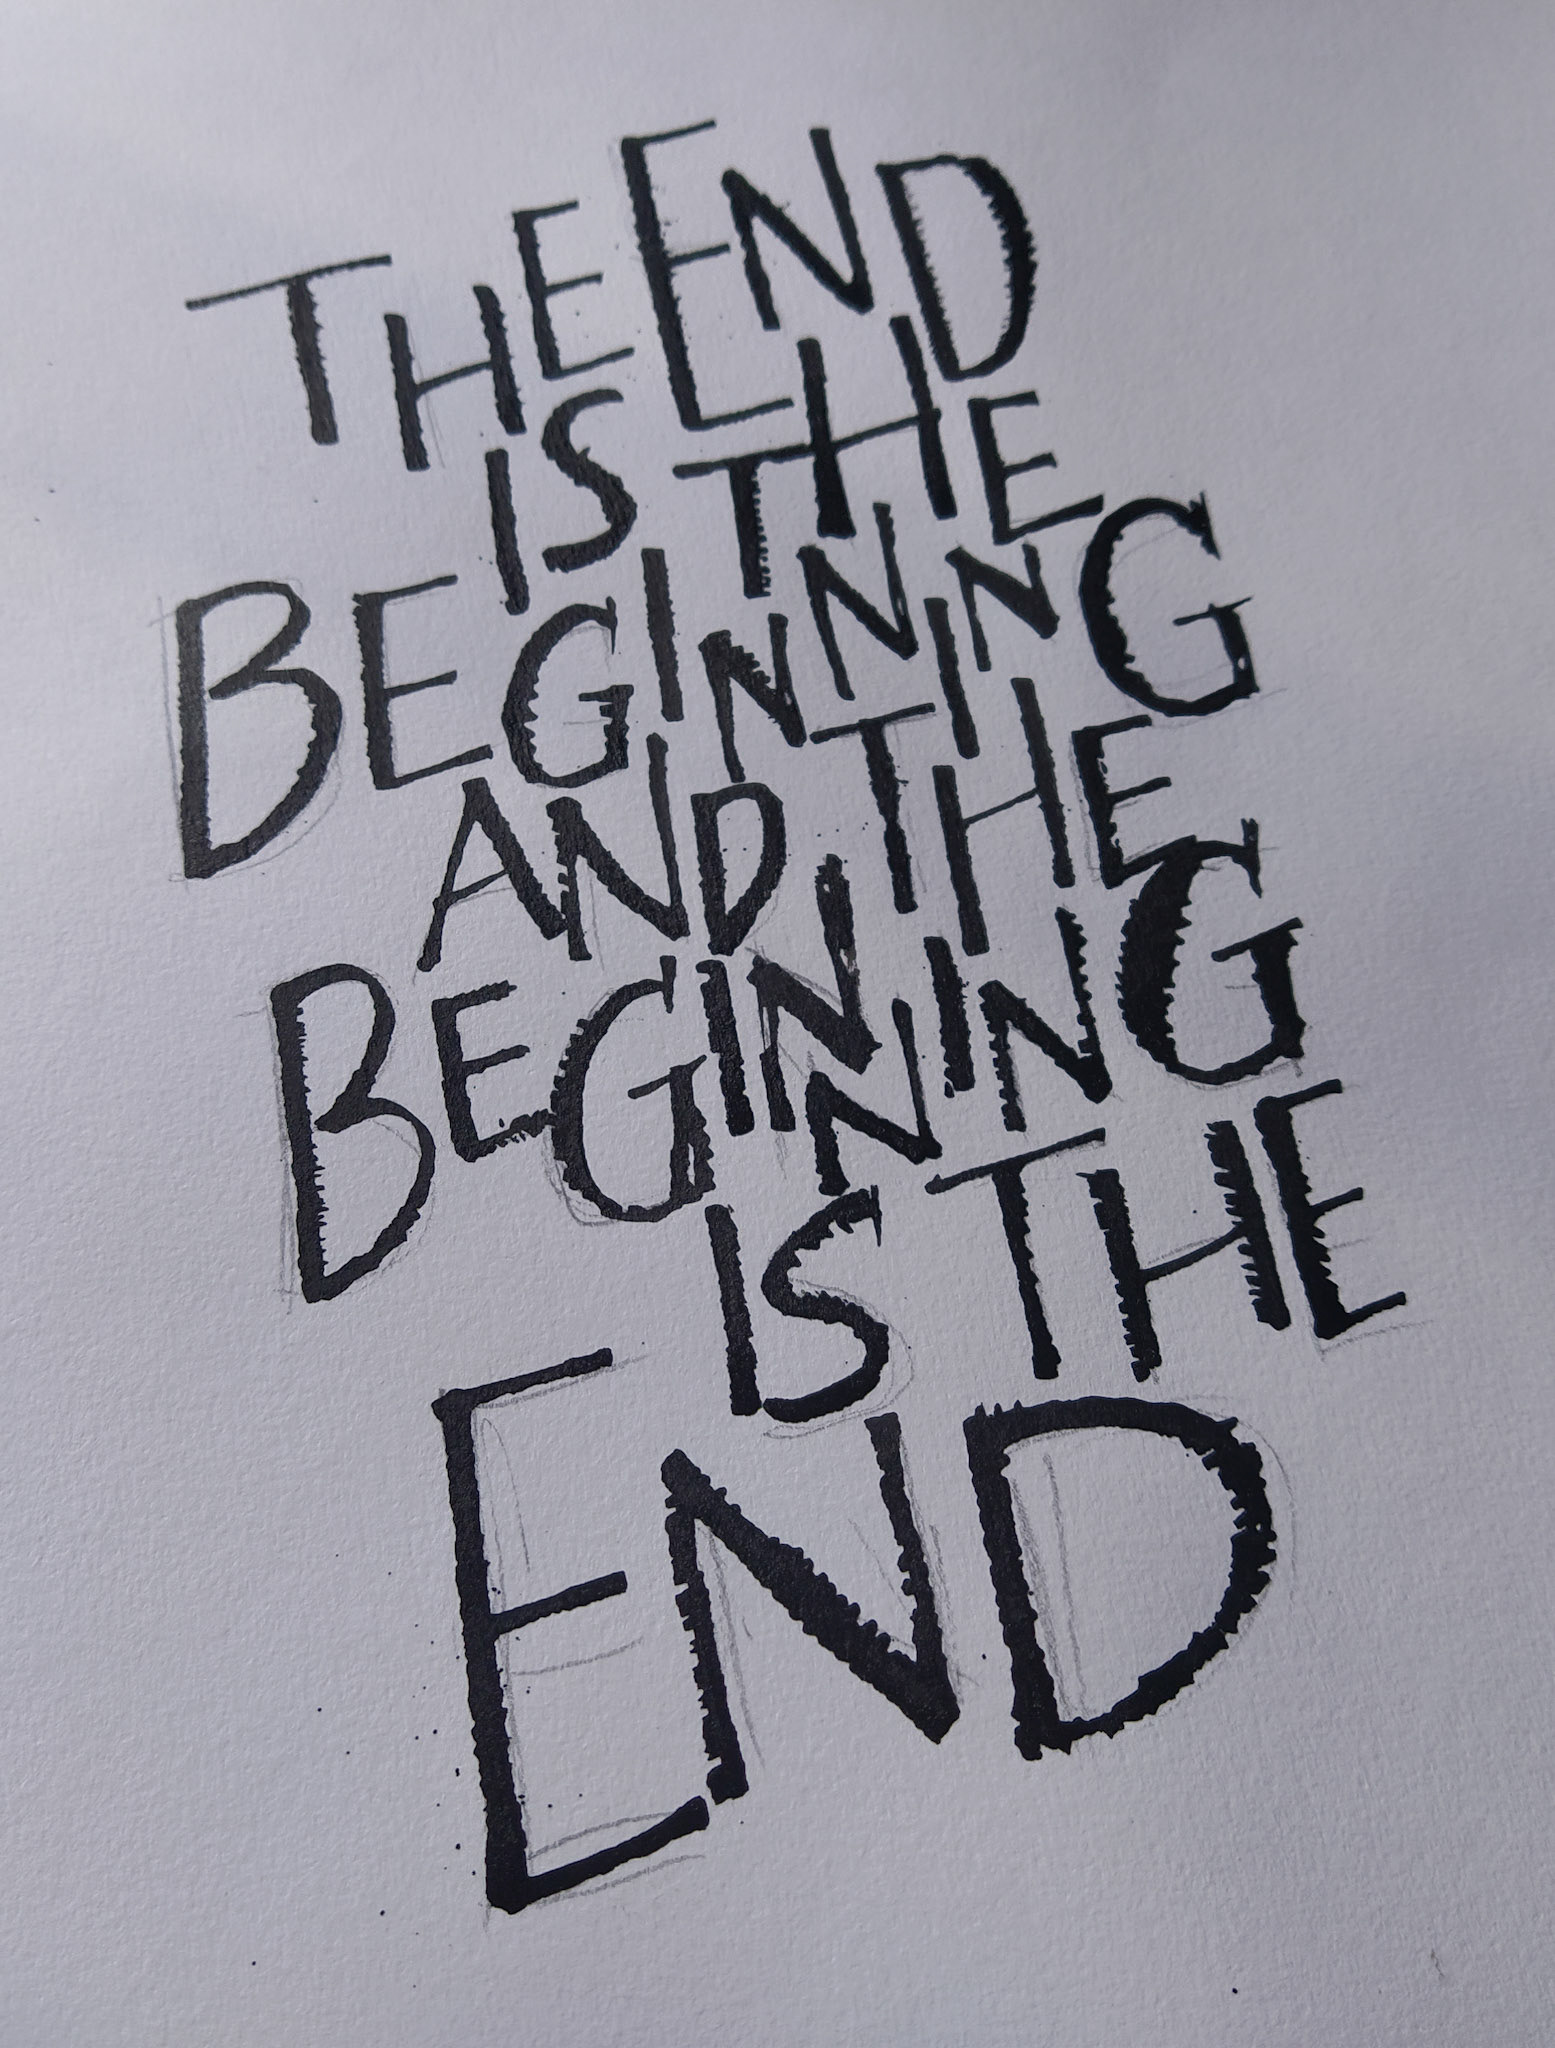 THE END
IS THE
BEGINNING
AND THE
BEGINNING
IS THE
END